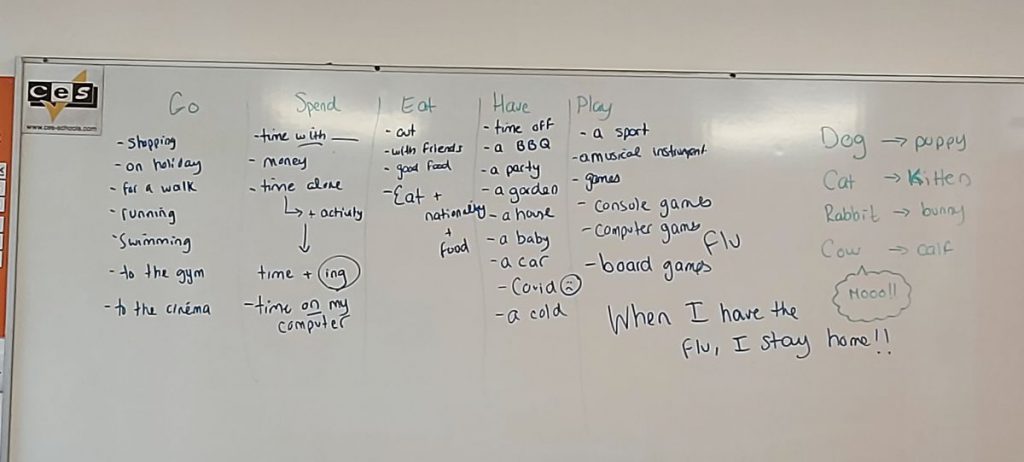 ces
www.ces-schools.com
Go
- shopping
- on holiday
- for a walk
- running
- swimming
- to the gym
- to the cinema
Spend
- time with ____
- money
- time alone
+ activity
time + ing
- time on my
computer
Eat
- out
- with friends
- good food
- Eat +
nationality
+
food
Have
- time off
- a BBQ
- a party
- a garden
- a house
- a baby
- a car
- Covid
- a cold
Play
- a sport
- a musical instrument
- games
- console games
- computer games
- board games
Flu
When I have the
flu, I stay home!!
Dog → puppy
Cat → Kitten
Rabbit → bunny
Cow → calf
Mooo!!